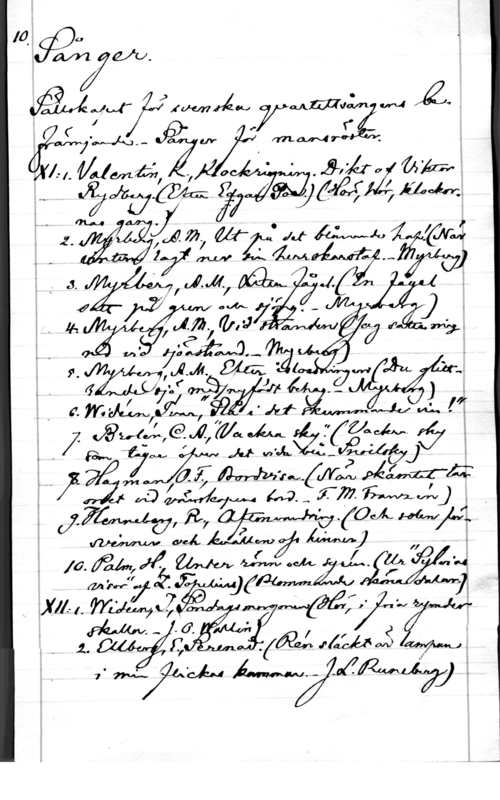 10.
Sånger.
Sällskapet för svenska quartettsångens be-
främjande. - Sånger för mansröster.
XI: 1. Valentin, K., Klockringning. Dikt af Viktor
Rydberg. (Efter Edgar Poe.) (Hör, hör, klockor-
nas gång.)
2. Myrberg, A. M., Ut på det blånande haf. (När
lagt ner sin herrskarostaf. - Myrberg)
3. Myrberg, A. M., Liten fågel. (En fågel
satt på gren och sjöng. - Myrberg)
4. Myrberg, A. M., Vid stranden (Jag satte mig
ned vid sjöastrand. - Myrberg)
5. Myrberg, A. M., Efter islossningen (Du glitt-
rande sjö med nyfödt behag. - Myrberg)
6. Wideen, Ivar, "Slå i det skummande vin!"
7. Brolén, C. A., "Vackra sky." (Vackra sky
som tågar öfver det vida - Snoilsky)
8. Hagman, O. F., Bordvisa. (När skämtet tar
ordet vid vänskapens bord. - F. M. Franzén)
9. Henneberg, R., Aftonvandring. (Och solen för-
svinner och kvällen oss hinner)
10. Palm, H., Under rönn och syrén. (Ur "Sylvias
visor" af Z. Topelius) (Blommande sköna dalar)
XII: 1. Wideen, I., Söndagsmorgonen (Hör, i fria rymder
skallar. - J. O. Wallin)
2. Ellberg, E., Serenad. (Ren släckt är lampan
i min flickas kammar. - J. L. Runeberg)